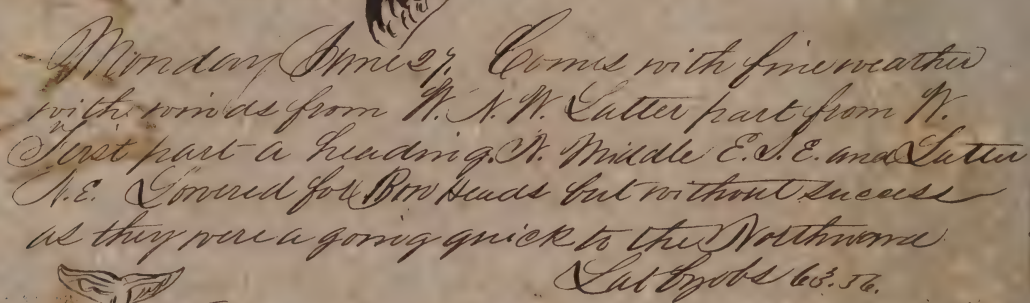 Monday June 27. Comes with fine weather
with winds from W. N. W. Latter part from W.
First part a heading. N. Middle E. S. E. and Latter
N. E. Lowered for Bow Heads but without success
as they were a going quick to the Northward
Lat by obs 63.36.